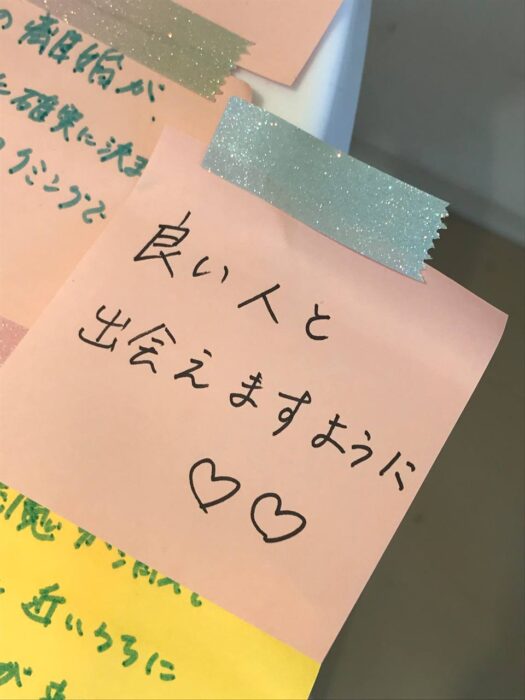 の離婚が、
確実に決ま
タイミングで
良い人と
出会えますように
♡♡
が消えて
近いうちに
が